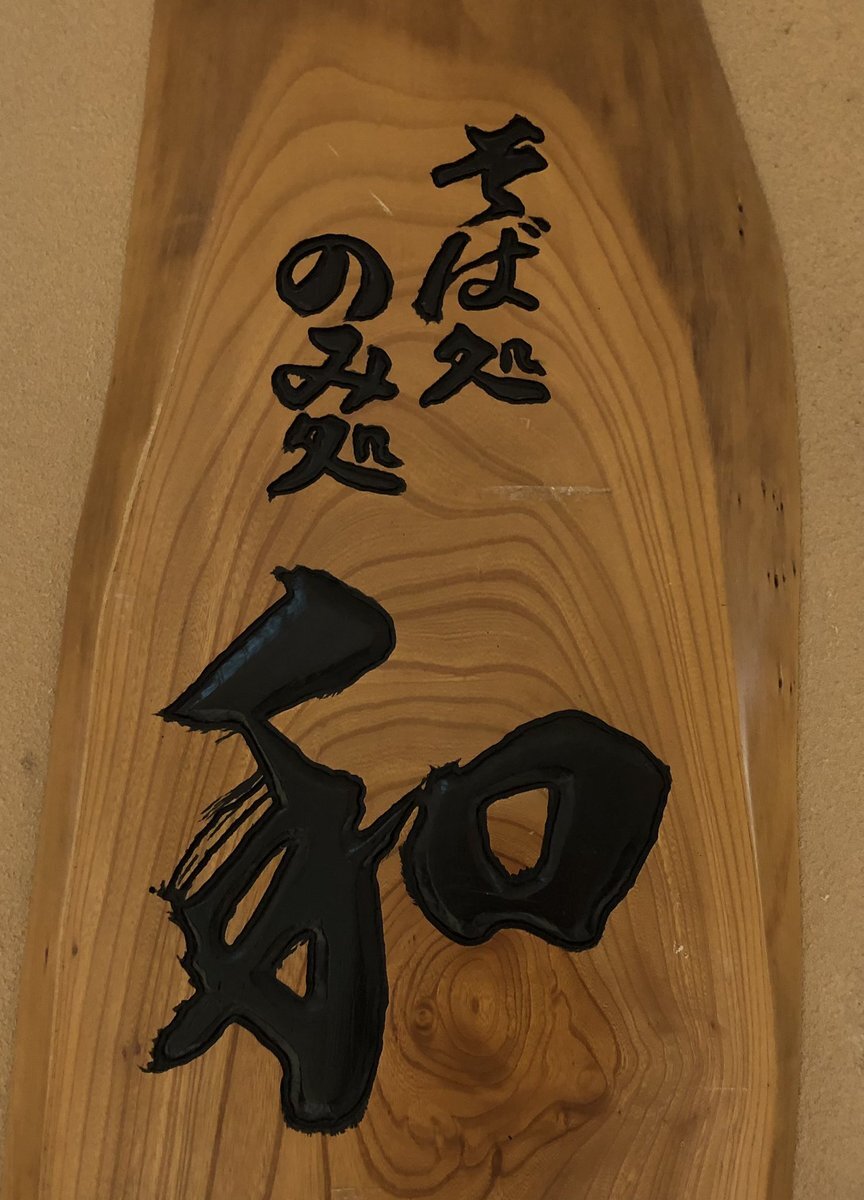 そば処
のみ処
和